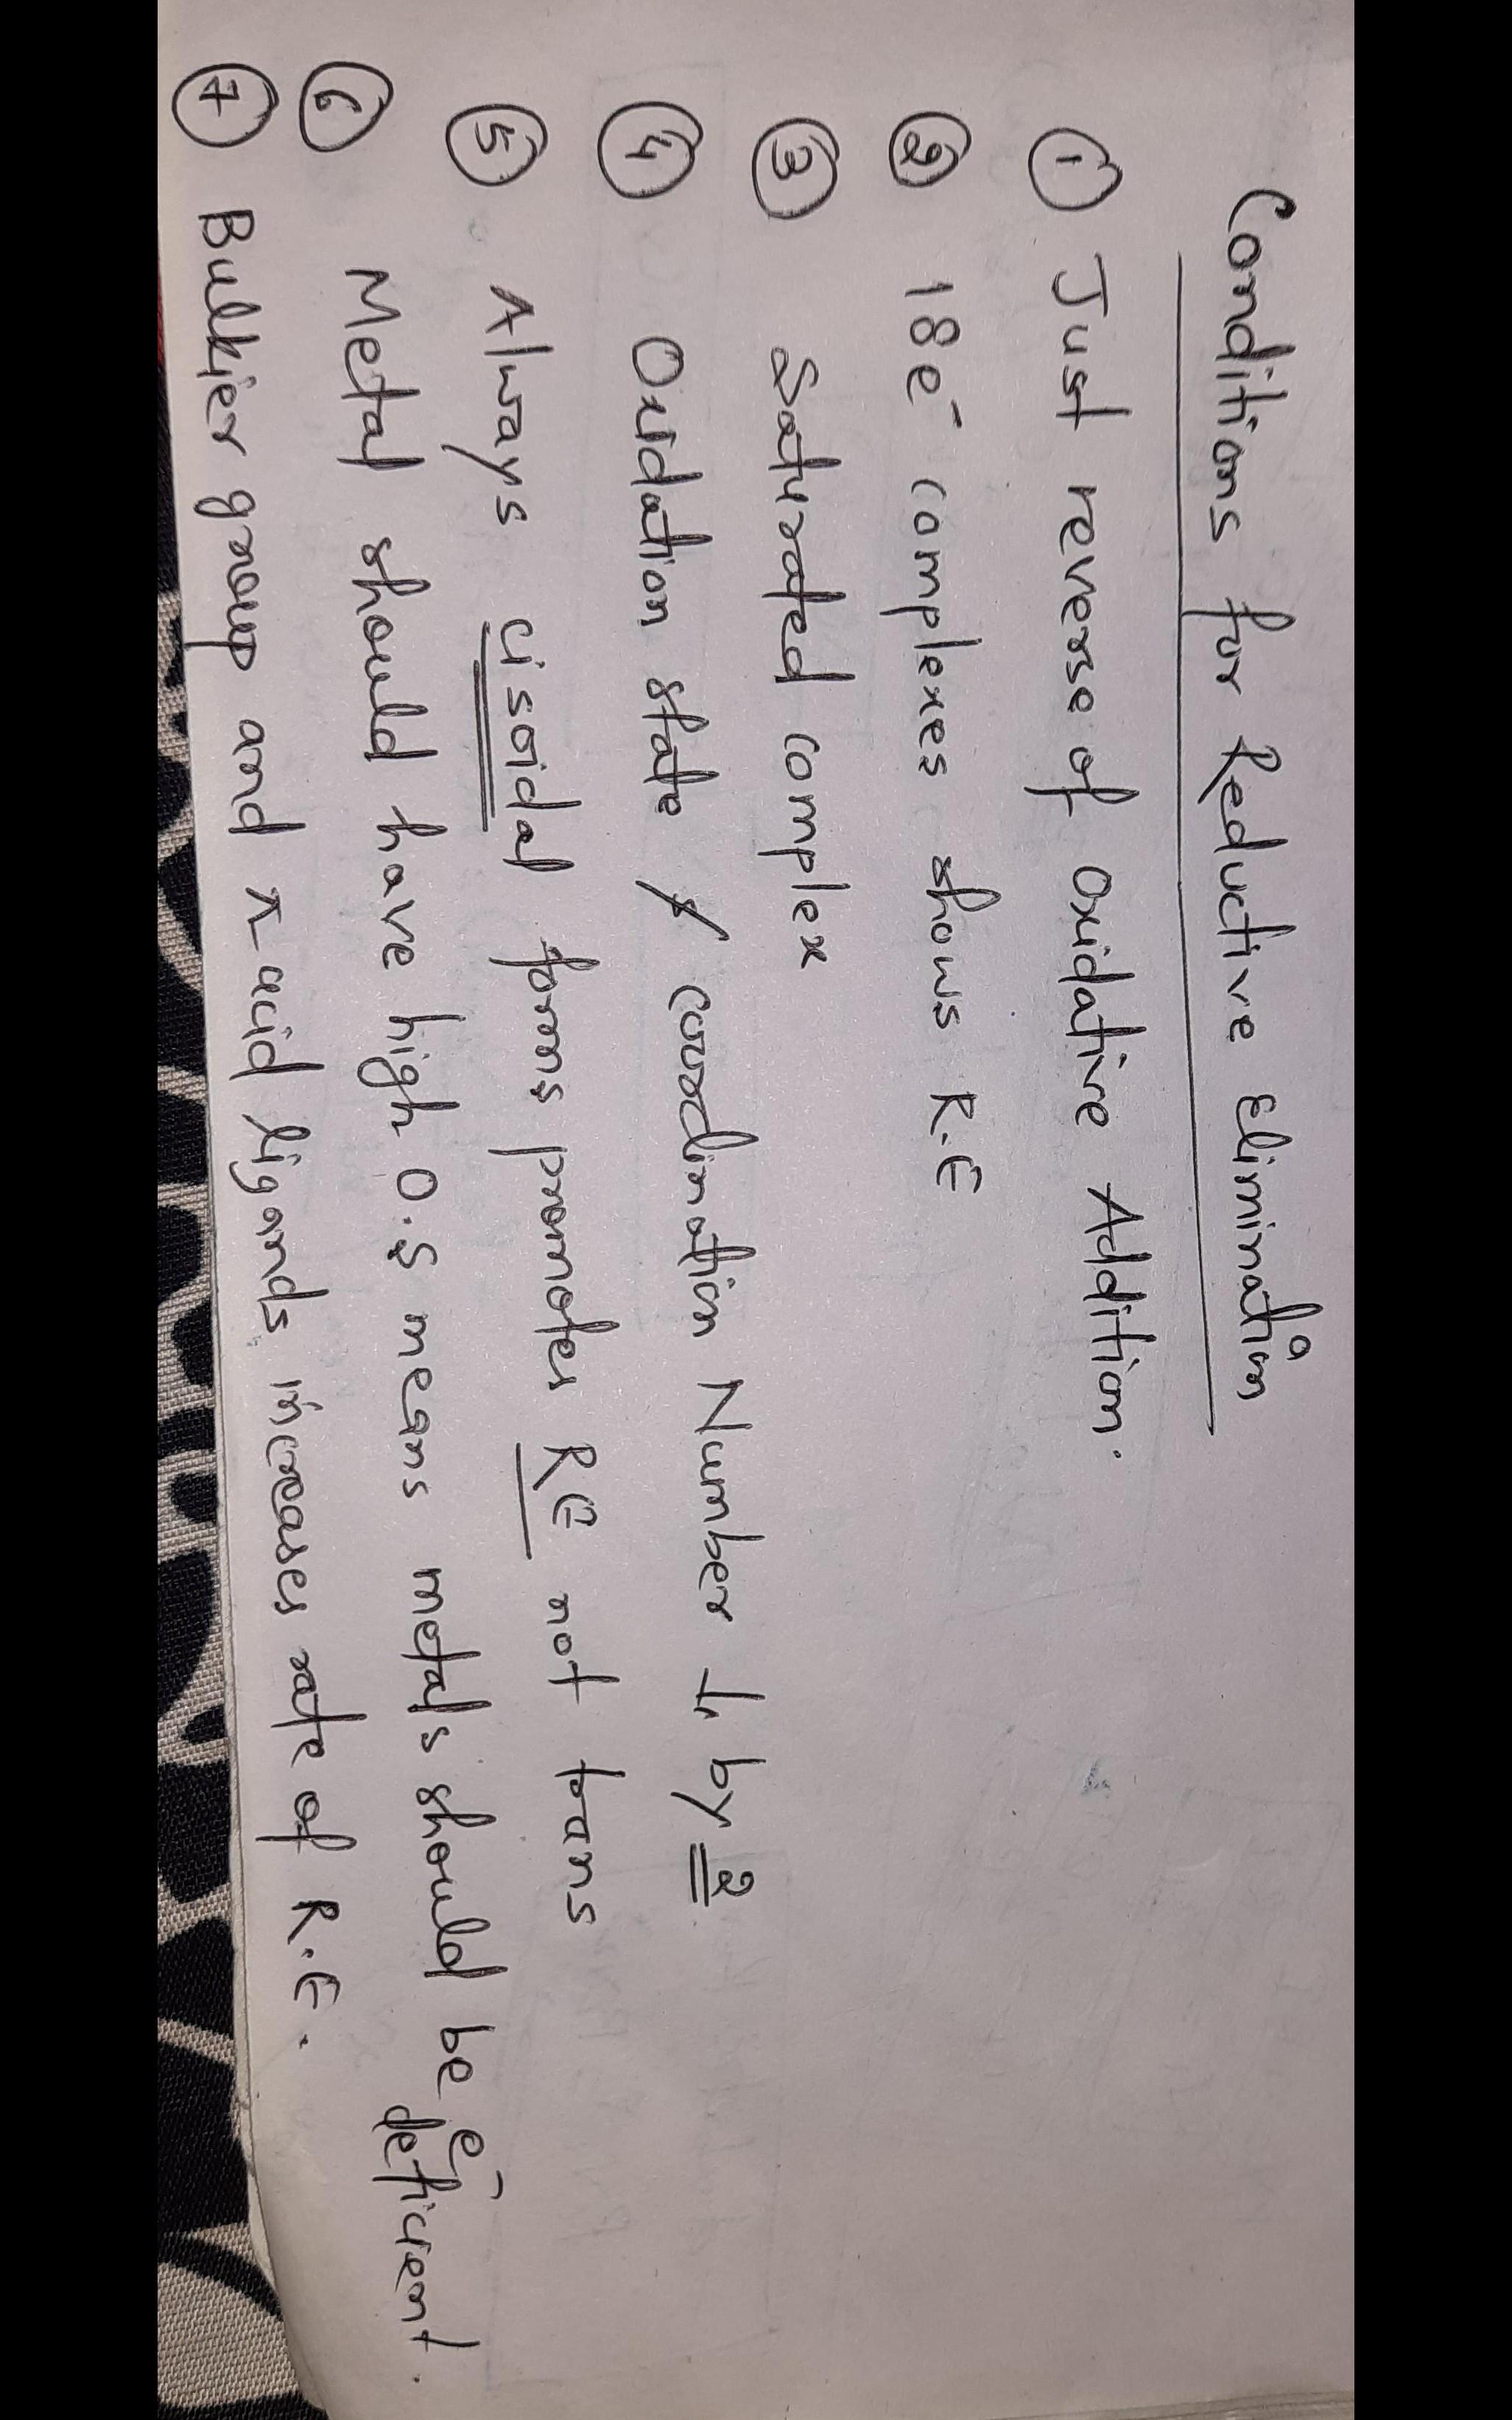 Conditions for Reductive Elimination
① Just reverse of Oxidative Addition.
② 18e⁻ complexes shows R.E
③ Saturated complex
④ Oxidation state & coordination Number ↓ by 2
⑤ Always cisoidal forms promotes RE not trans
⑥ Metal should have high O.S means metals should be e⁻ deficient.
⑦ Bulkier group and π acid ligands increases rate of R.E.